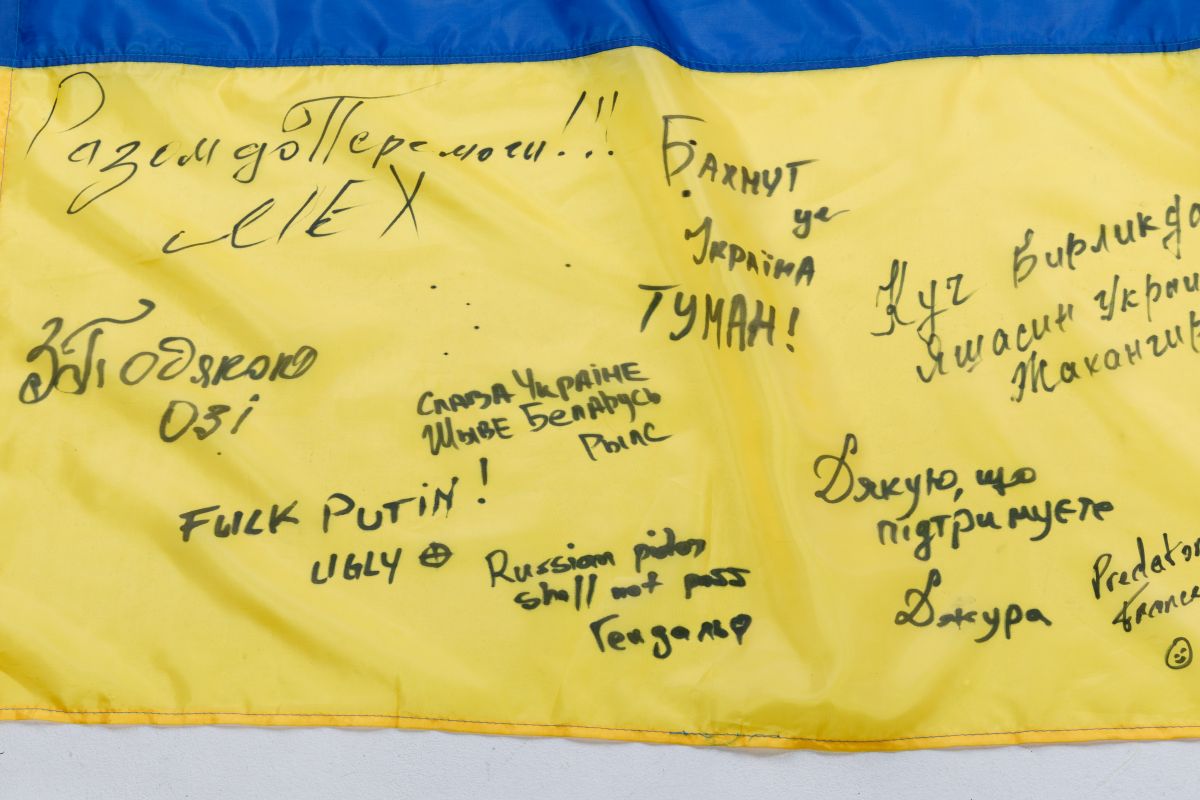 Разом до Перемоги!!!
МЕХ
Бахмут
це
Україна
ТУМАН!
Куч Бирликда
Яшасин Украи
Жахангир
З Подякою
Озі
Слава Україне
Жыве Беларусь
Рыпс
FUCK PUTIN!
UGLY
Russian pidor
shall not pass
Гендальф
Дякую, що
підтримуєте
Джура
Predator
France